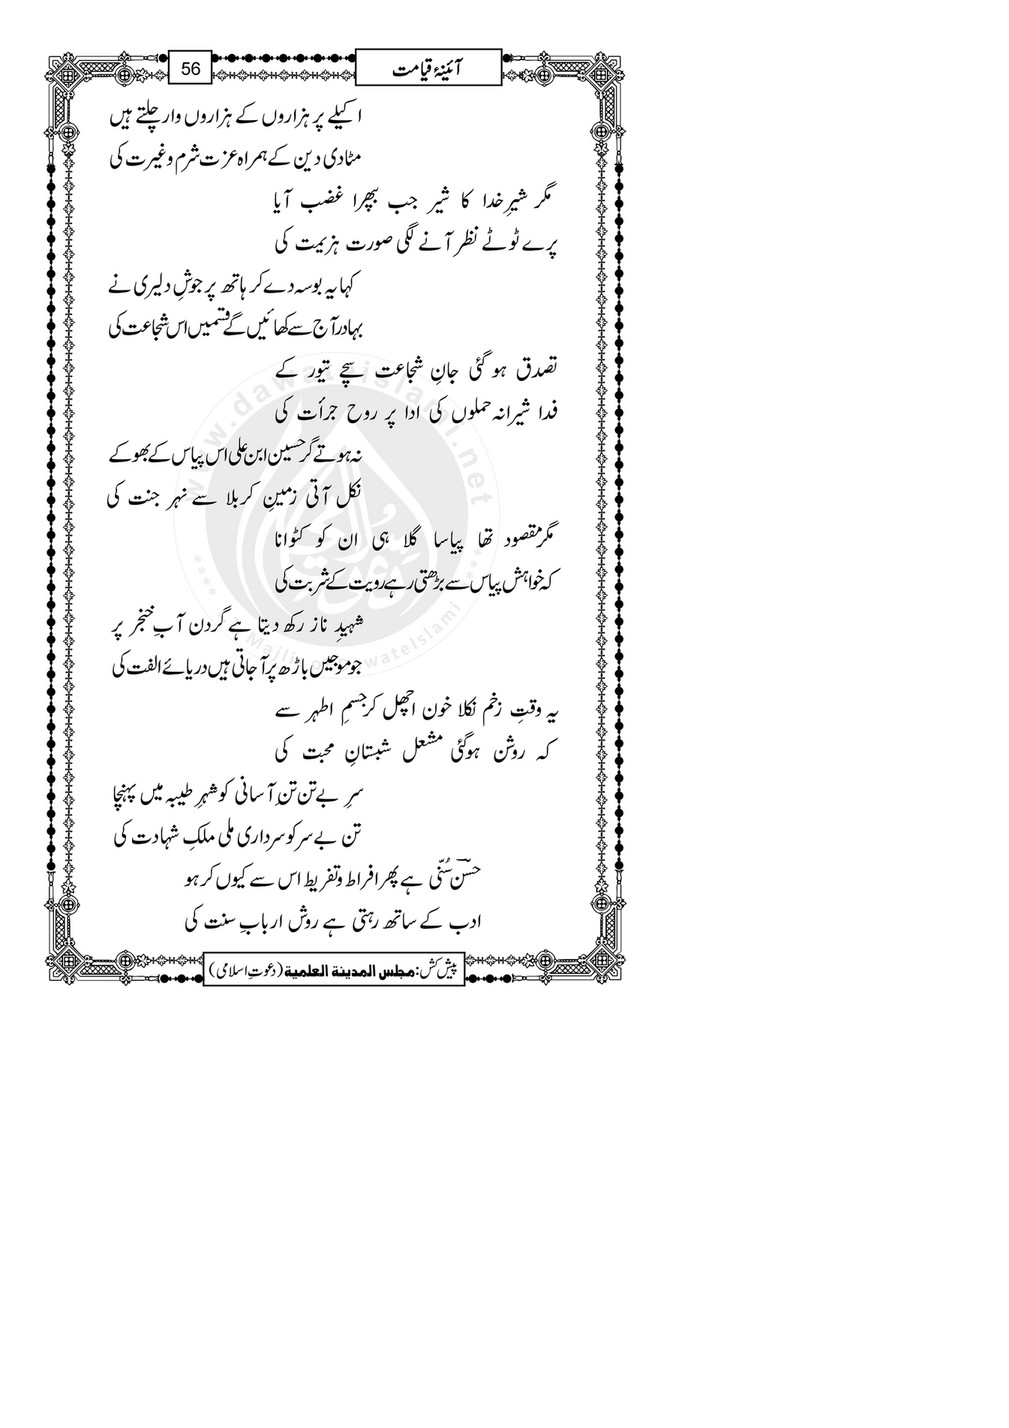 آئینۂ قیامت
56
اکیلے پر ہزاروں کے ہزاروں وار چلتے ہیں
مٹادی دین کے ہمراہ عزت شرم وغیرت کی
مگر شیرِ خدا کا شیر جب بپھرا غضب آیا
پرے ٹوٹے نظر آنے لگی صورت ہزیمت کی
کہا یہ بوسہ دے کر ہاتھ پر جوشِ دلیری نے
بہادر آج سے کھائیں گے قسمیں اس شجاعت کی
تصدق ہو گئی جانِ شجاعت سچے تیور کے
فدا شیرانہ حملوں کی ادا پر روح جرأت کی
نہ ہوتے گر حسین ابن علی اس پیاس کے بھوکے
نکل آتی زمینِ کربلا سے نہر جنت کی
مگر مقصود تھا پیاسا گلا ہی ان کو کٹوانا
کہ خواہش پیاس سے بڑھتی رہے رویت کے شربت کی
شہیدِ ناز رکھ دیتا ہے گردن آبِ خنجر پر
جو موجیں باڑھ پر آ جاتی ہیں دریائے الفت کی
یہ وقتِ زخم نکلا خون اچھل کر جسمِ اطہر سے
کہ روشن ہوگئی مشعل شبستانِ محبت کی
سرِ بے تن تن آسانی کو شہرِ طیبہ میں پہنچا
تن بے سر کو سرداری ملی ملکِ شہادت کی
حسنؔ سُنّی ہے پھر افراط وتفریط اس سے کیوں کر ہو
ادب کے ساتھ رہتی ہے روش اربابِ سنت کی
پیش کش: مجلس المدینة العلمیة (دعوتِ اسلامی)
www.dawateislami.net